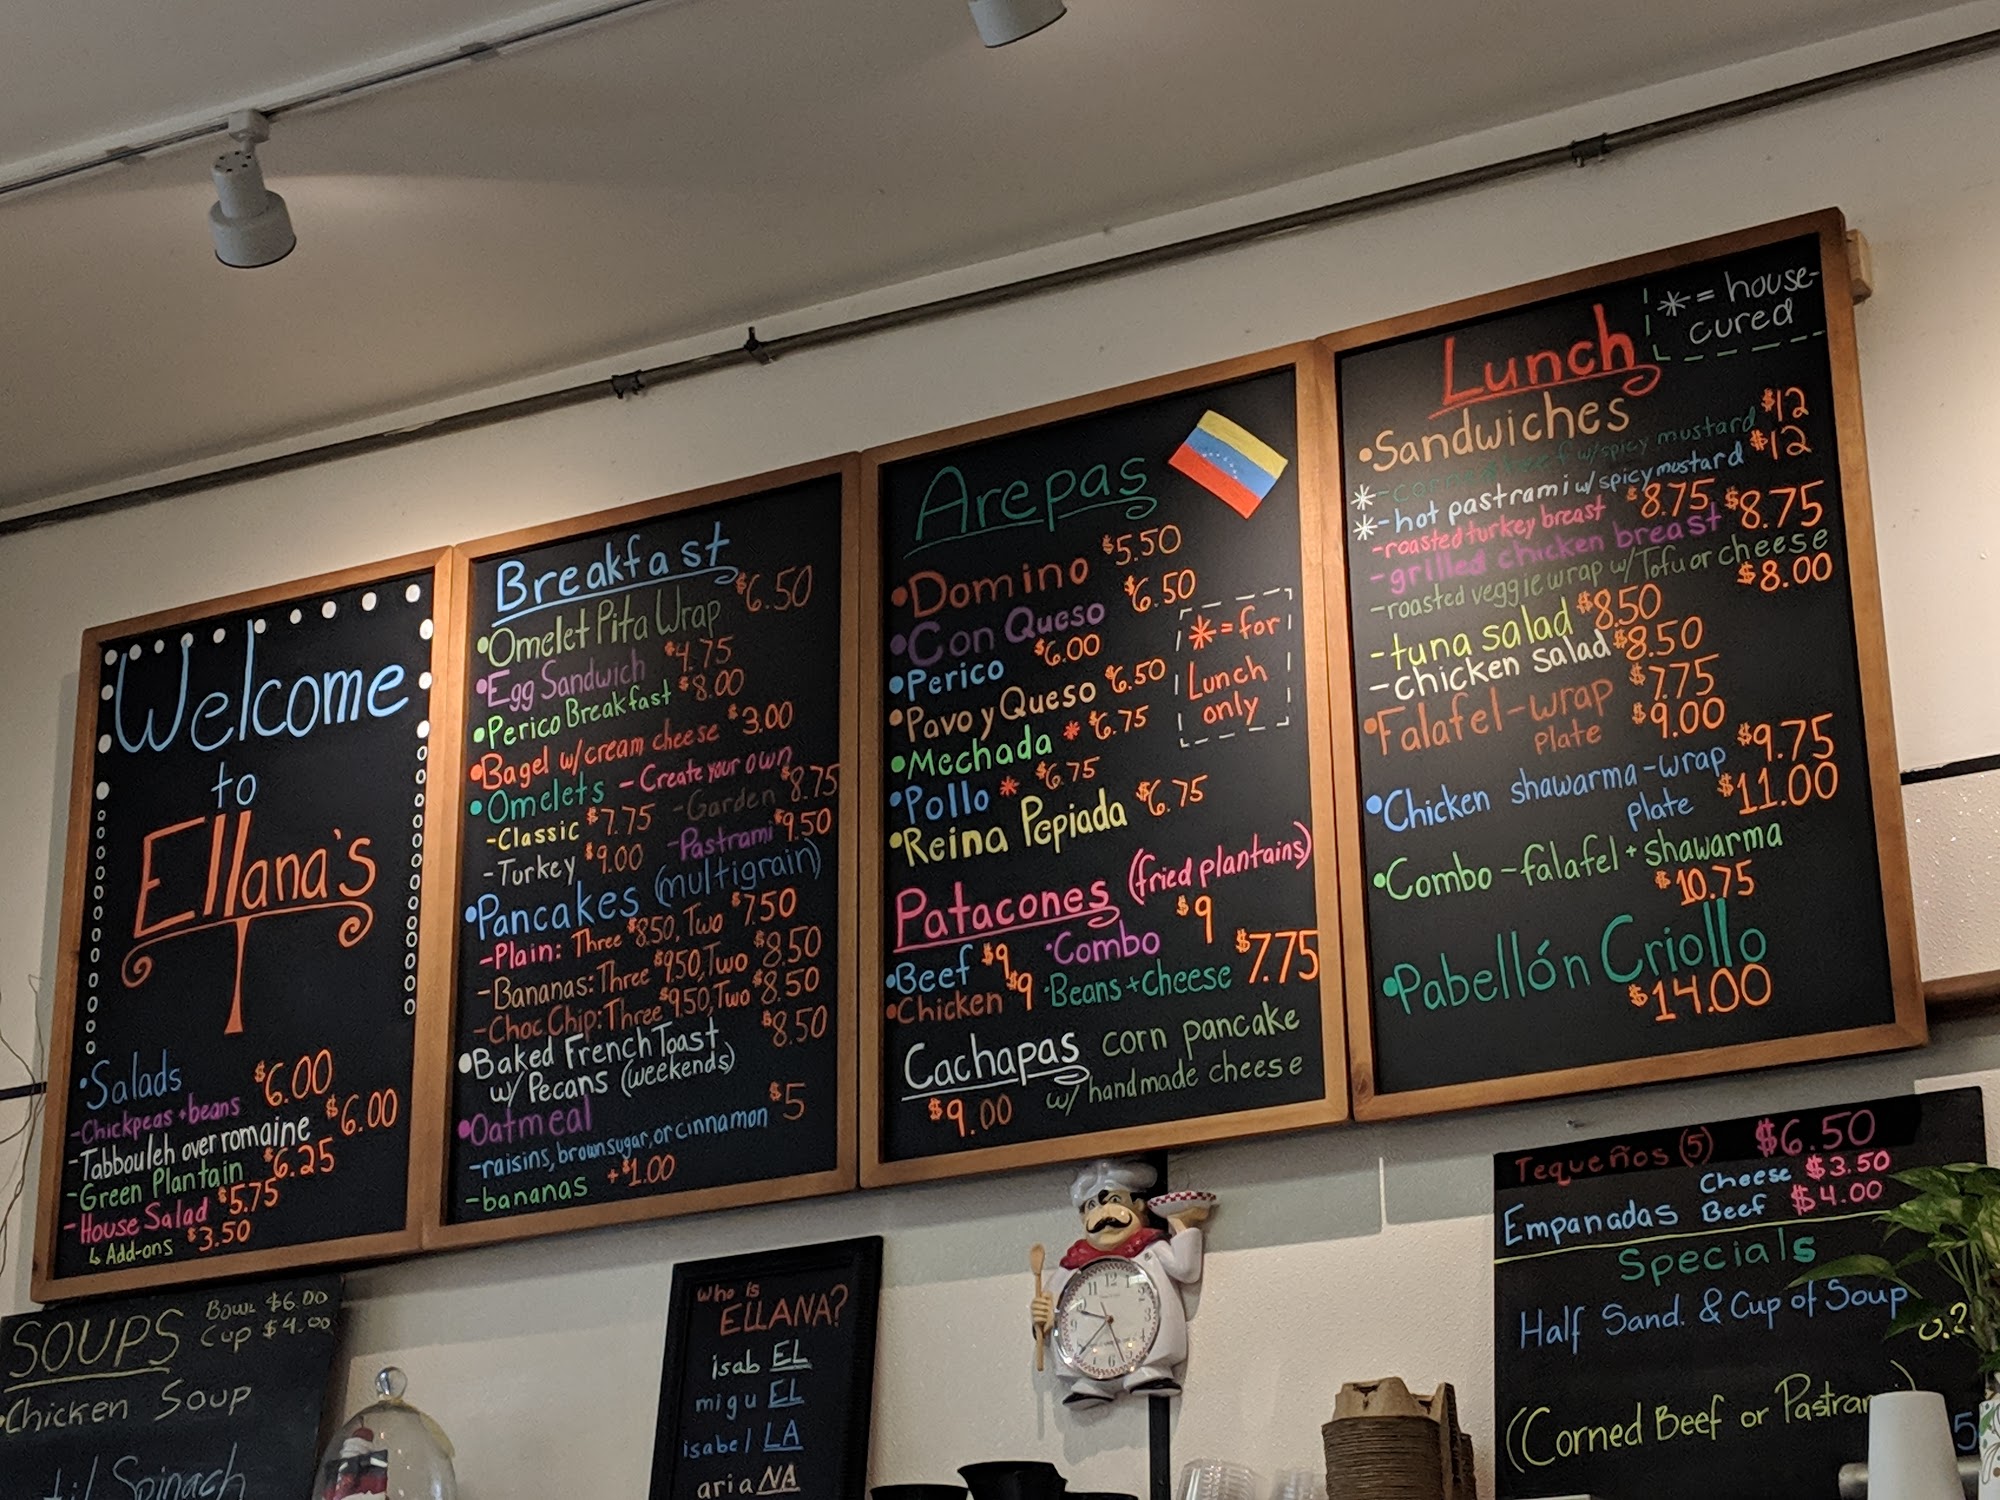 Welcome
to
Ellana's
•Salads
-Chickpeas+beans $6.00
-Tabbouleh over romaine $6.00
-Green Plantain $6.25
-House Salad $5.75
↳ Add-ons $3.50
Breakfast
•Omelet Pita Wrap $6.50
•Egg Sandwich $4.75
•Perico Breakfast $8.00
•Bagel w/cream cheese $3.00
•Omelets -Create your own
-Classic $7.75 -Garden $8.75
-Turkey $9.00 -Pastrami $9.50
•Pancakes (multigrain)
-Plain: Three $8.50, Two $7.50
-Bananas: Three $9.50, Two $8.50
-Choc.Chip: Three $9.50, Two $8.50
•Baked French Toast $8.50
w/ Pecans (weekends)
•Oatmeal
-raisins, brown sugar, or cinnamon $5
-bananas +$1.00
Arepas
•Domino $5.50
•Con Queso $6.50
•Perico $6.00
•Pavo y Queso $6.50
•Mechada * $6.75
•Pollo * $6.75
•Reina Pepiada $6.75
*=for
Lunch
only
Patacones (fried plantains)
•Beef $9 •Combo $9
•Chicken $9 •Beans+Cheese $7.75
Cachapas corn pancake
$9.00 w/ handmade cheese
Lunch
*= house-
cured
•Sandwiches
*-corned beef w/spicy mustard $12
*-hot pastrami w/ spicy mustard $12
-roasted turkey breast $8.75
-grilled chicken breast $8.75
-roasted veggie wrap w/ Tofu or cheese
$8.00
-tuna salad $8.50
-chicken salad $8.50
•Falafel-wrap $7.75
plate $9.00
•Chicken shawarma-wrap $9.75
plate $11.00
•Combo-falafel + shawarma
$10.75
•Pabellón Criollo
$14.00
SOUPS Bowl $6.00
Cup $4.00
•Chicken Soup
Spinach
Who is
ELLANA?
isab EL
migu EL
isabel LA
aria NA
Tequeños (5) $6.50
Empanadas Cheese $3.50
Beef $4.00
Specials
Half Sand. & Cup of Soup
(Corned Beef or